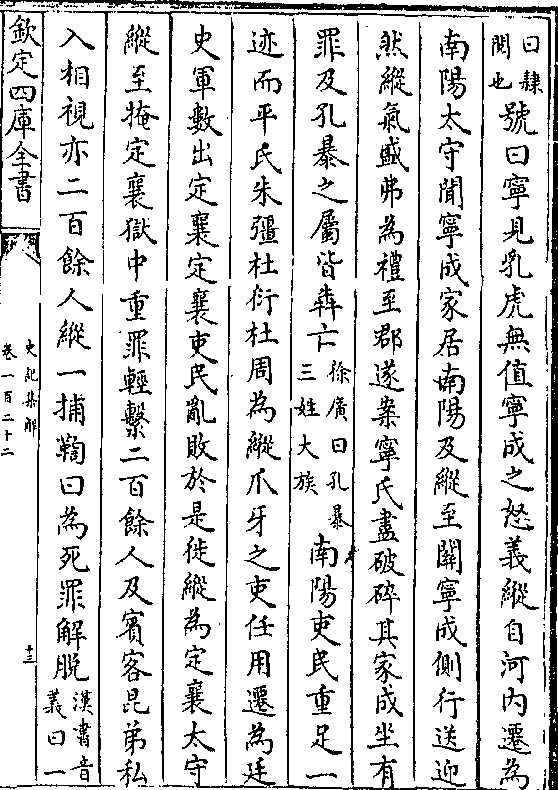 曰隸
閱也
號曰寧見乳虎無值寧成之怒義縱自河内遷為
南陽太守聞寧成家居南陽及縱至關寧成側行送迎
然縱氣盛弗為禮至郡遂案寧氏盡破碎其家成坐有
罪及孔暴之屬皆犇亡
徐廣曰孔暴
三姓大族
南陽吏民重足一
迹而平氏朱彊杜衍杜周為縱爪牙之吏任用遷為廷
史軍數出定襄定襄吏民亂敗於是徙縱為定襄太守
縱至掩定襄獄中重罪輕繫二百餘人及賓客昆弟私
入相視亦二百餘人縱一捕鞫曰為死罪解脱
漢書音
義曰一
欽定四庫全書
史記集解
卷一百二十二
十三